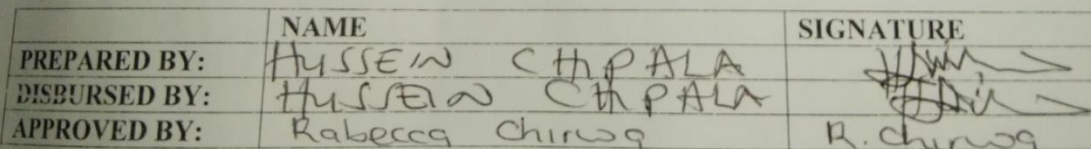 NAME SIGNATURE
PREPARED BY: HUSSEIN CHIPALA
DISBURSED BY: HUSSEIN CHIPALA
APPROVED BY: Rabecca Chirwa R. Chirwa